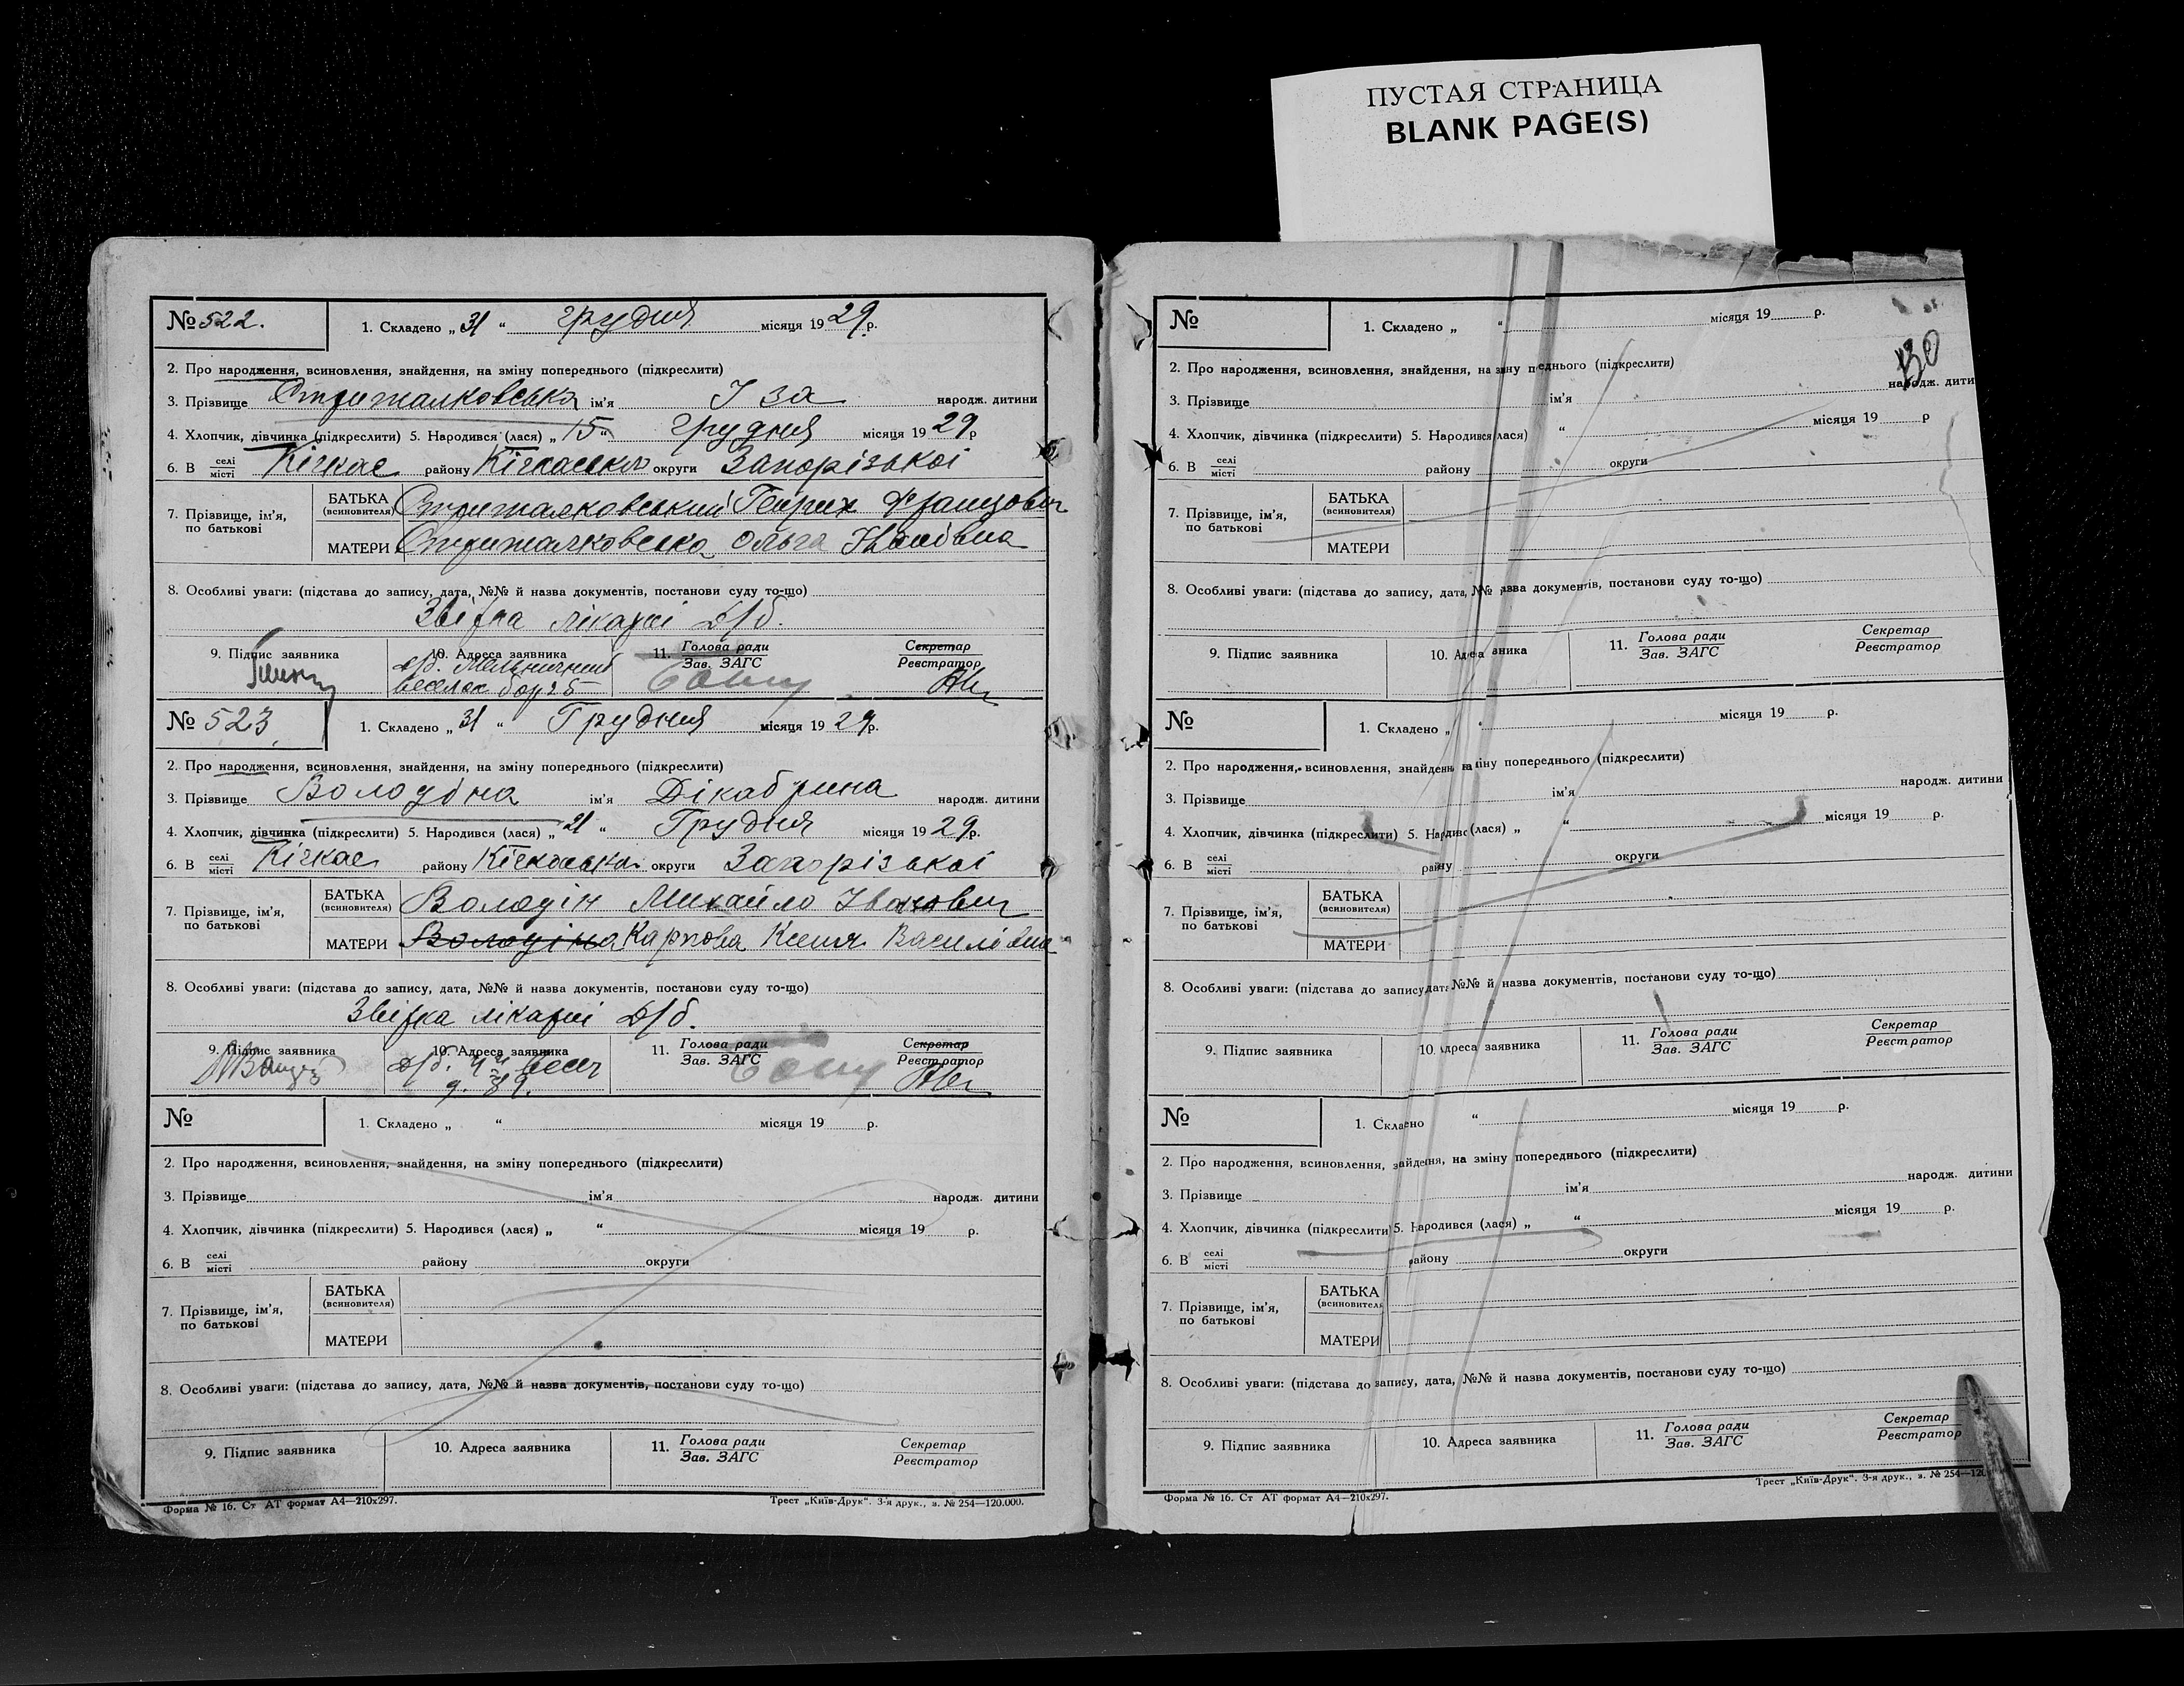 ПУСТАЯ СТРАНИЦА
BLANK PAGE(S)
№ 522.
1. Складено „ 31 “ грудня місяця 1929 р.
2. Про народження, всиновлення, знайдення, на зміну попереднього (підкреслити)
3. Прізвище Стрижалковська ім’я Іза народж. дитини
4. Хлопчик, дівчинка (підкреслити) 5. Народився (лася) „ 15 “ грудня місяця 1929 р
6. В селі/місті Кічкас району Кічкаськ округи Запорізької
7. Прізвище, ім’я, по батькові
БАТЬКА (всиновителя) Стрижалковський Генрих Францович
МАТЕРИ Стрижалковська Ольга Іванівна
8. Особливі уваги: (підстава до запису, дата, №№ й назва документів, постанови суду то-що)
Звістка лікарні Д/б.
9. Підпис заявника
10. Адреса заявника
11. Голова ради
Зав. ЗАГС
Секретар
Реєстратор
№ 523
1. Складено „ 31 “ Грудня місяця 1929 р.
2. Про народження, всиновлення, знайдення, на зміну попереднього (підкреслити)
3. Прізвище Володіна ім’я Дікабрина народж. дитини
4. Хлопчик, дівчинка (підкреслити) 5. Народився (лася) „ 21 “ Грудня місяця 1929 р.
6. В селі/місті Кічкас району Кічкаська округи Запорізької
7. Прізвище, ім’я, по батькові
БАТЬКА (всиновителя) Володін Михайло Іванович
МАТЕРИ Володіна Карпова Ксеня Василівна
8. Особливі уваги: (підстава до запису, дата, №№ й назва документів, постанови суду то-що)
Звістка лікарні Д/б.
9. Підпис заявника
10. Адреса заявника
11. Голова ради
Зав. ЗАГС
Секретар
Реєстратор
№
1. Складено „ “ місяця 19 р.
2. Про народження, всиновлення, знайдення, на зміну попереднього (підкреслити)
3. Прізвище ім’я народж. дитини
4. Хлопчик, дівчинка (підкреслити) 5. Народився (лася) „ “ місяця 19 р.
6. В селі/місті району округи
7. Прізвище, ім’я, по батькові
БАТЬКА (всиновителя)
МАТЕРИ
8. Особливі уваги: (підстава до запису, дата, №№ й назва документів, постанови суду то-що)
9. Підпис заявника
10. Адреса заявника
11. Голова ради
Зав. ЗАГС
Секретар
Реєстратор
Форма № 16. Ст АТ формат А4—210х297.
Трест „Київ-Друк“. 3-я друк., з. № 254—120.000.
130
№
1. Складено „ “ місяця 19 р.
2. Про народження, всиновлення, знайдення, на зміну попереднього (підкреслити)
3. Прізвище ім’я народж. дити
4. Хлопчик, дівчинка (підкреслити) 5. Народився (лася) “ місяця 19 р
6. В селі/місті району округи
7. Прізвище, ім’я, по батькові
БАТЬКА (всиновителя)
МАТЕРИ
8. Особливі уваги: (підстава до запису, дата, №№ назва документів, постанови суду то-що)
9. Підпис заявника
10. Адреса заявника
11. Голова ради
Зав. ЗАГС
Секретар
Реєстратор
№
1. Складено „ “ місяця 19 р.
2. Про народження, всиновлення, знайдення на зміну попереднього (підкреслити)
3. Прізвище ім’я народж. дитини
4. Хлопчик, дівчинка (підкреслити) 5. Народився (лася) „ “ місяця 19 р.
6. В селі/місті району округи
7. Прізвище, ім’я, по батькові
БАТЬКА (всиновителя)
МАТЕРИ
8. Особливі уваги: (підстава до запису, дата №№ й назва документів, постанови суду то-що)
9. Підпис заявника
10. Адреса заявника
11. Голова ради
Зав. ЗАГС
Секретар
Реєстратор
№
1. Складено “ місяця 19 р.
2. Про народження, всиновлення, знайдення, на зміну попереднього (підкреслити)
3. Прізвище ім’я народж. дитини
4. Хлопчик, дівчинка (підкреслити) 5. Народився (лася) „ “ місяця 19 р.
6. В селі/місті району округи
7. Прізвище, ім’я, по батькові
БАТЬКА (всиновителя)
МАТЕРИ
8. Особливі уваги: (підстава до запису, дата, №№ й назва документів, постанови суду то-що)
9. Підпис заявника
10. Адреса заявника
11. Голова ради
Зав. ЗАГС
Секретар
Реєстратор
Форма № 16. Ст АТ формат А4—210х297.
Трест „Київ-Друк“. 3-я друк., з. № 254—120